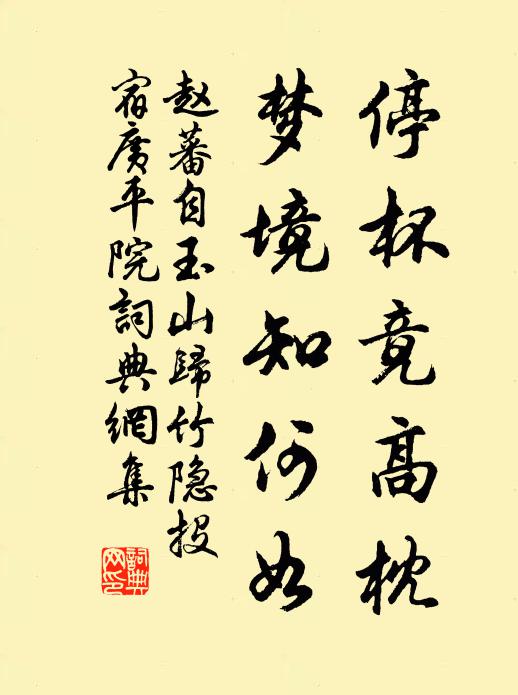 停杯竟高枕
梦境知何如
赵蕃自玉山歸竹隐投
宿廣平院詞典網集
詞典网印